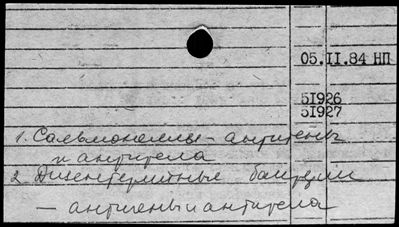 05.II.84 НП
51926
51927
1. Сальмонеллы - антигены
и антитела
2. Дизентерийные бактерии
— антигены и антитела